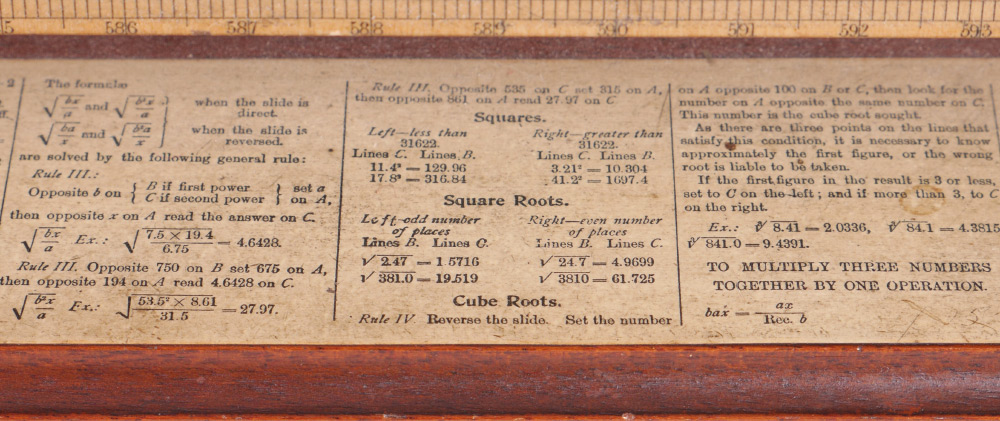 586 587 588 589 590 591 592 593
The formulæ
√bx/a and √b²x/a } when the slide is direct.
√ba/x and √b²a/x } when the slide is reversed.
are solved by the following general rule:
Rule III.:
Opposite b on { B if first power } set a
{ C if second power } on A,
then opposite x on A read the answer on C.
√bx/a Ex.: √7.5 × 19.4/6.75 = 4.6428.
Rule III. Opposite 750 on B set 675 on A,
then opposite 194 on A read 4.6428 on C.
√b²x/a Ex.: √53.5² × 8.61/31.5 = 27.97.
Rule III. Opposite 535 on C set 315 on A,
then opposite 861 on A read 27.97 on C
Squares.
Left—less than 31622. Right—greater than 31622.
Lines C. Lines B. Lines C. Lines B.
11.4² = 129.96 3.21² = 10.304
17.8² = 316.84 41.2² = 1697.4
Square Roots.
Left-odd number of places Right—even number of places
Lines B. Lines C. Lines B. Lines C.
√2.47 = 1.5716 √24.7 = 4.9699
√381.0 = 19.519 √3810 = 61.725
Cube Roots.
Rule IV Reverse the slide. Set the number
on A opposite 100 on B or C, then look for the
number on A opposite the same number on C.
This number is the cube root sought.
As there are three points on the lines that
satisfy this condition, it is necessary to know
approximately the first figure, or the wrong
root is liable to be taken.
If the first figure in the result is 3 or less,
set to C on the left; and if more than 3, to C
on the right.
Ex.: ∛8.41 = 2.0336, ∛84.1 = 4.3815
∛841.0 = 9.4391.
TO MULTIPLY THREE NUMBERS
TOGETHER BY ONE OPERATION.
bax = ax/Rec. b